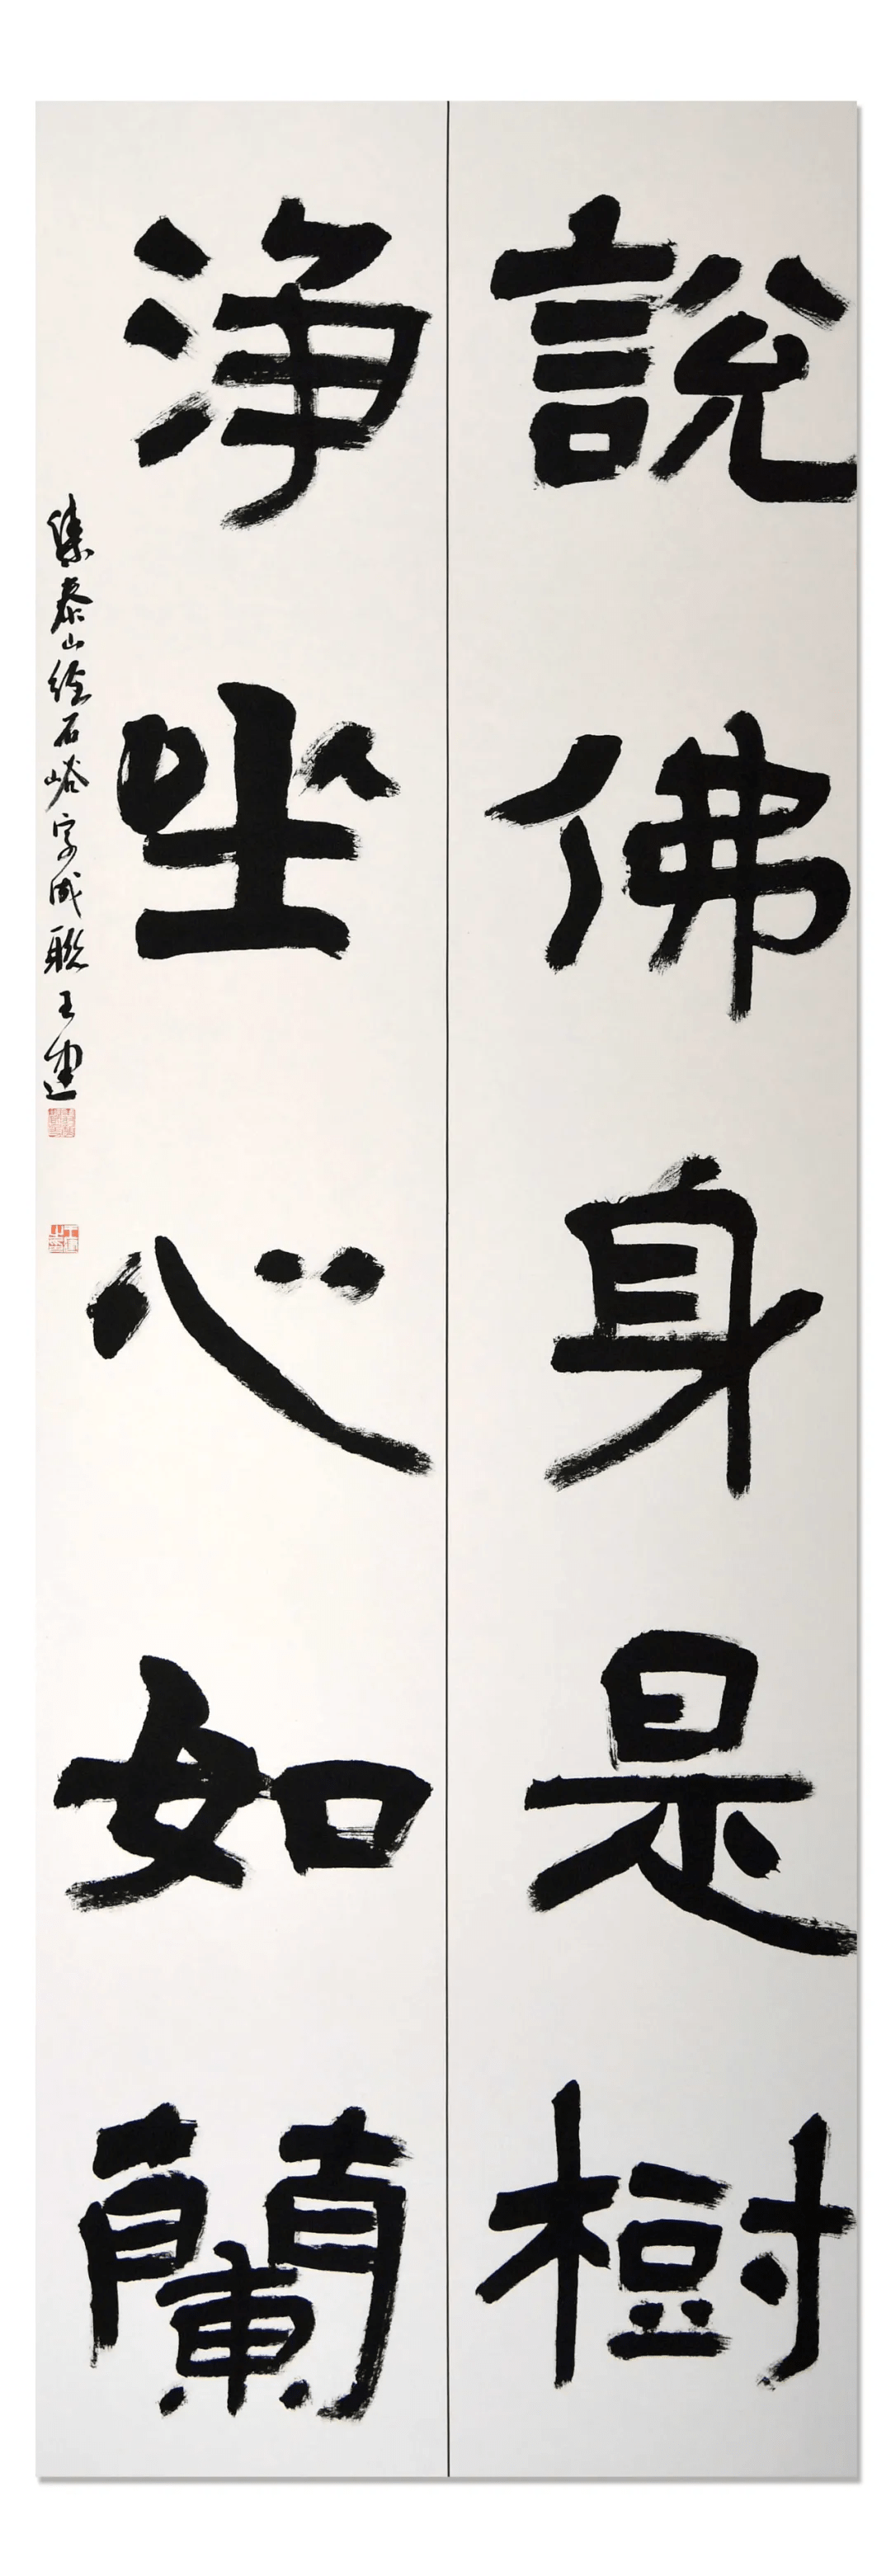 說佛身是樹
淨坐心如蘭
集泰山經石峪字成聯王建